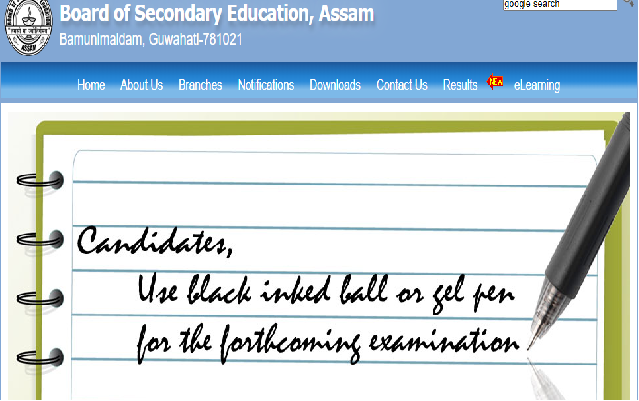 Board of Secondary Education, Assam
google search
Bamunimaidam, Guwahati-781021
Home About Us Branches Notifications Downloads Contact Us Results NEW eLearning
Candidates,
Use black inked ball or gel pen
for the forthcoming examination
ASSAM